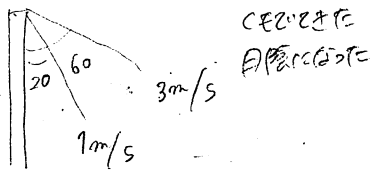 20
60
3m/s
1m/s
くもでてきた
日陰になった